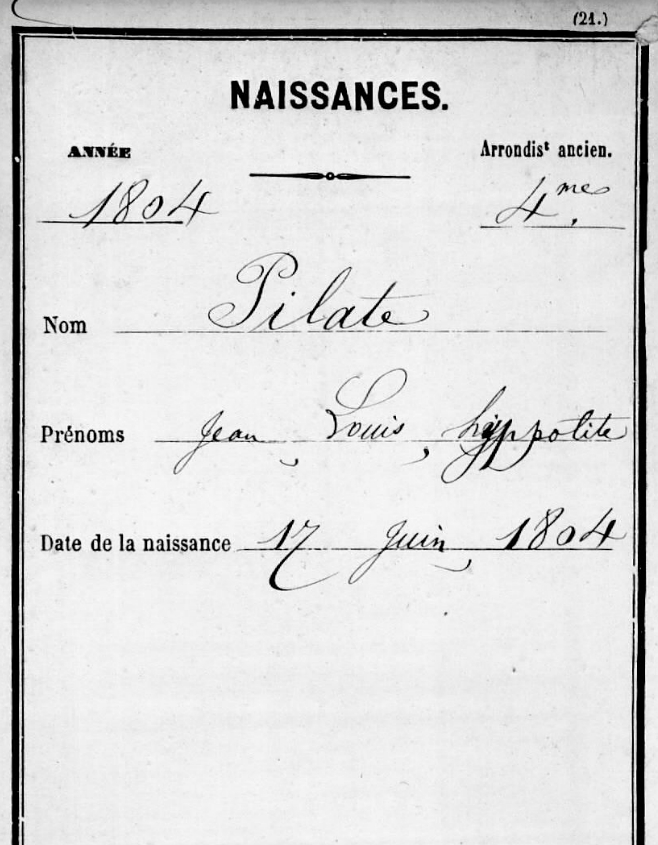 (21.)
NAISSANCES.
ANNÉE
Arrondist ancien.
1804
4mes.
Nom Pilate
Prénoms Jean, Louis, hyppolite
Date de la naissance 17 Juin, 1804